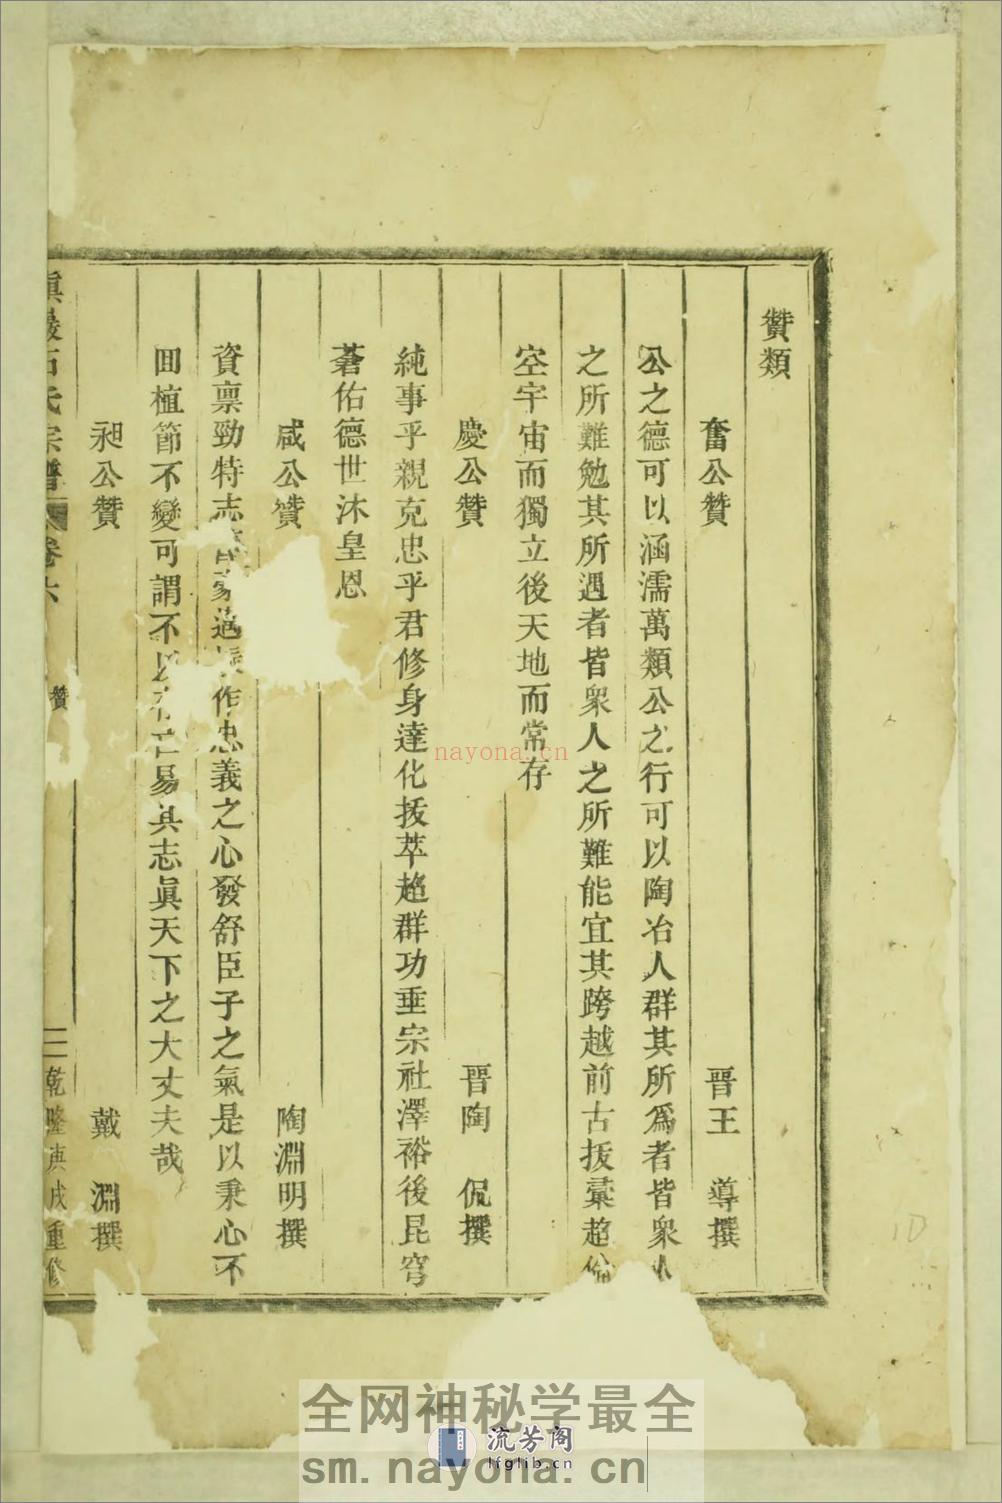 贊類
奮公贊 晋王 導撰
公之德可以涵濡萬類公之行可以陶冶人群其所爲者皆衆人
之所難勉其所遇者皆衆人之所難能宜其跨越前古拔彙超倫
空宇宙而獨立後天地而常存
慶公贊 晋陶 侃撰
純事乎親克忠乎君修身達化拔萃超群功垂宗社澤裕後昆穹
蒼佑德世沐皇恩
咸公贊 陶淵明撰
資禀勁特志 作忠義之心發舒臣子之氣是以秉心不
囬植節不變可謂不以 易其志眞天下之大丈夫哉
昶公贊 戴 淵撰
石氏宗譜 卷六 贊 二 乾隆庚戌重修
nayona.cn
全网神秘学最全
流芳阁
lfglib.cn
sm.nayona.cn